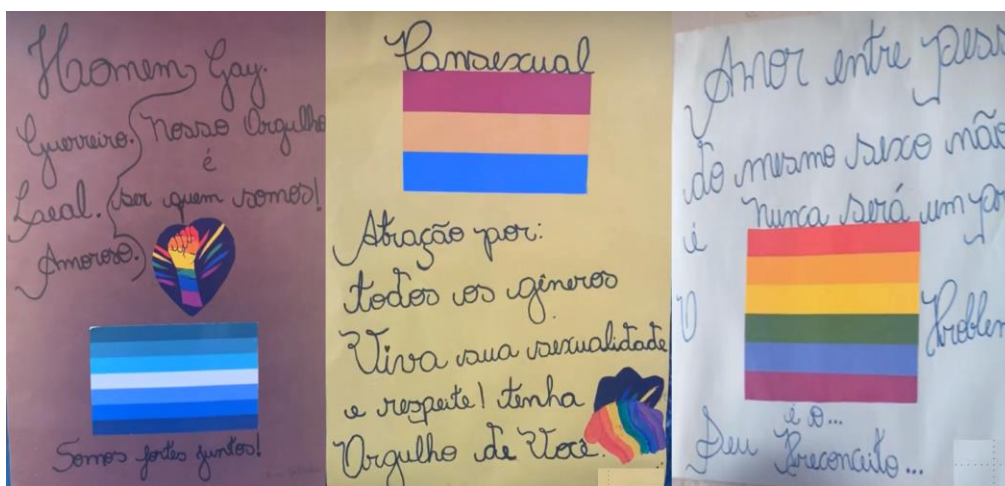 Homem Gay.
Guerreiro. Nosso Orgulho
é
Leal. ser quem somos!
Amoroso.
Somos fortes juntos!
Pansexual
Atração por:
todos os gêneros
Viva sua sexualidade
e respeite! tenha
Orgulho de Você.
Amor entre pess
do mesmo sexo não
é nunca será um
O Problem
é o...
Seu Preconceito...